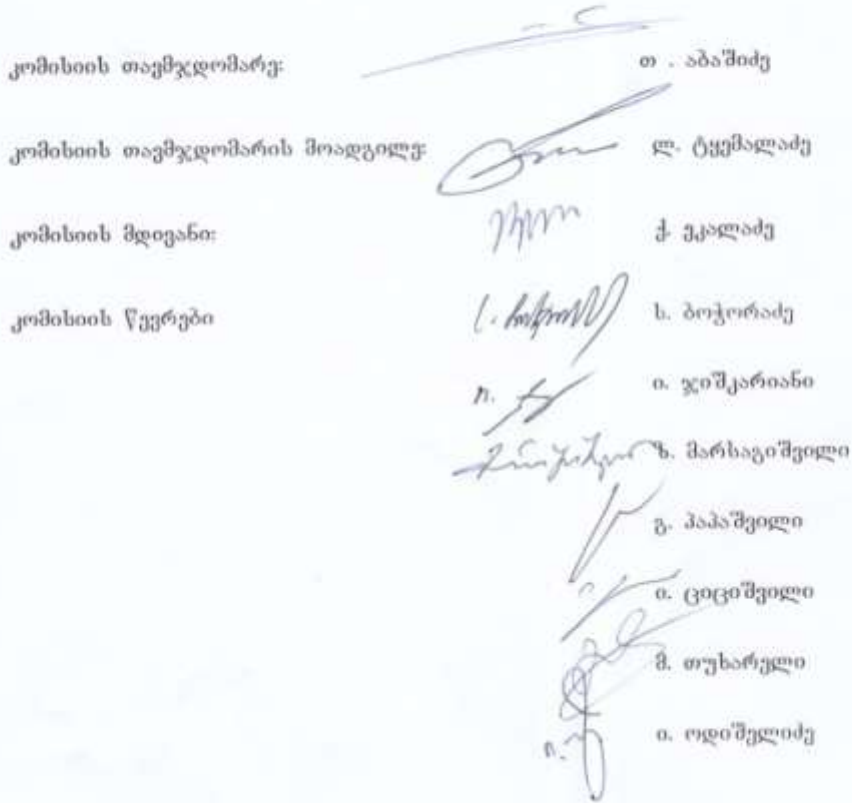 კომისიის თავმჯდომარე: თ . აბაშიძე
კომისიის თავმჯდომარის მოადგილე: ლ. ტყემალაძე
კომისიის მდივანი: ქ. ეკალაძე
კომისიის წევრები ს. ბოჭორაძე
ი. ჯიშკარიანი
ზ. მარსაგიშვილი
გ. პაპაშვილი
ი. ციციშვილი
მ. თუხარელი
ი. ოდიშელიძე